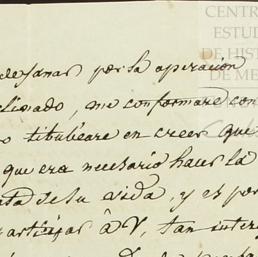 CENTRO
ESTUDI
DE HIST
DE ME
de sanar por la operacion
clinado, me conformaré con
titubeare en creer que
que era necesario hacer la
de su vida, y es por
participar á V. tan inter